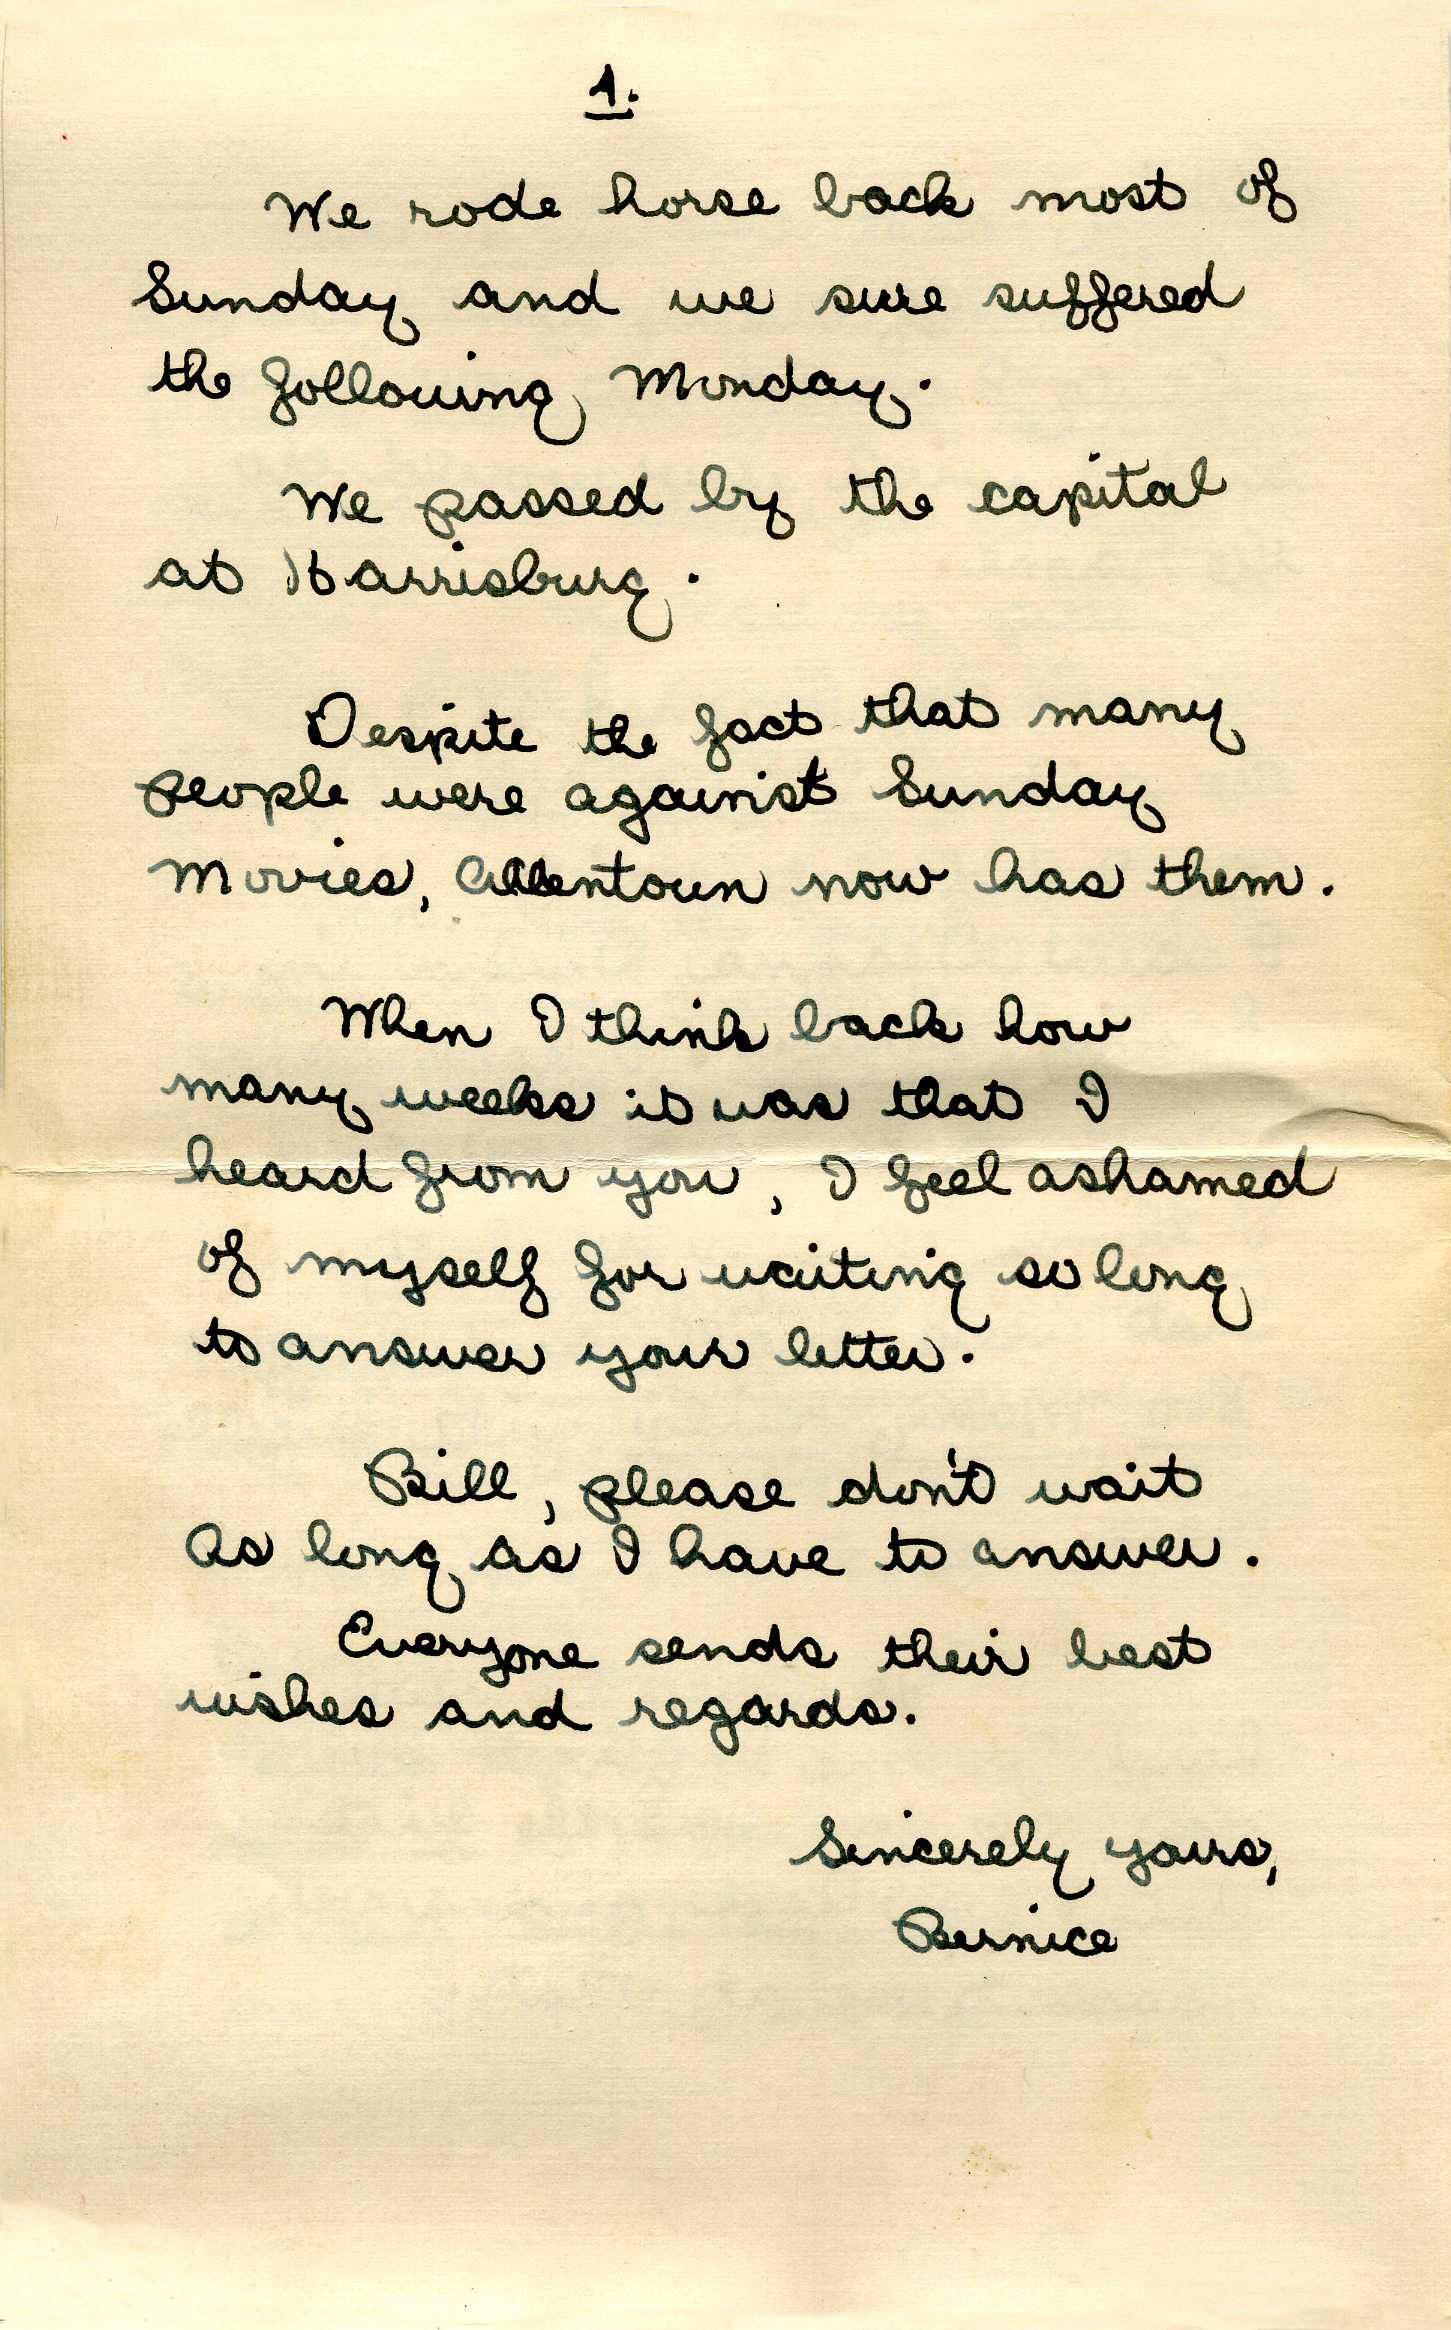 1.
We rode horse back most of
Sunday and we sure suffered
the following Monday.
We passed by the capital
at Harrisburg.
Despite the fact that many
people were against Sunday
Movies, Allentown now has them.
When I think back how
many weeks it was that I
heard from you, I feel ashamed
of myself for waiting so long
to answer your letter.
Bill, please don't wait
As long as I have to answer.
Everyone sends their best
wishes and regards.
Sincerely yours,
Bernice